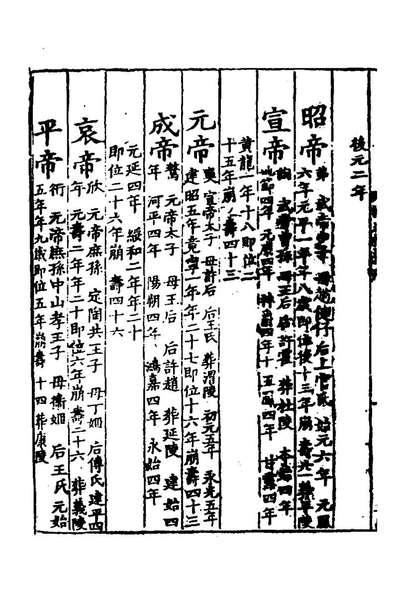 後元二年
昭帝 弗 武帝 母趙倢伃 后上官氏 始元六年 元鳳
六年元平一年年八歲即位後十三年崩 葬平陵
宣帝 詢 武帝曾孫 母王后 后許霍 葬杜陵 本始四年
地節四年 元康四年 神爵四年 五鳳四年 甘露四年
黃龍一年年十八即位二
十五年崩 壽四十三
元帝 奭 宣帝太子 母許后 后王氏 葬渭陵 初元五年 永光五年
建昭五年竟寧一年年二十七即位十六年崩壽四十三
成帝 驁 元帝太子 母王后 后許趙 葬延陵 建始四
年 河平四年 陽朔四年 鴻嘉四年 永始四年
元延四年 綏和二年年二十
即位二十六年崩 壽四十六
哀帝 欣 元帝庶孫 定陶共王子 母丁姬 后傅氏 建平四
年 元壽二年年二十即位六年崩壽二十六 葬義陵
平帝 衎 元帝庶孫中山孝王子 母衛姬 后王氏 元始
五年年九歲即位五年崩壽十四 葬康陵